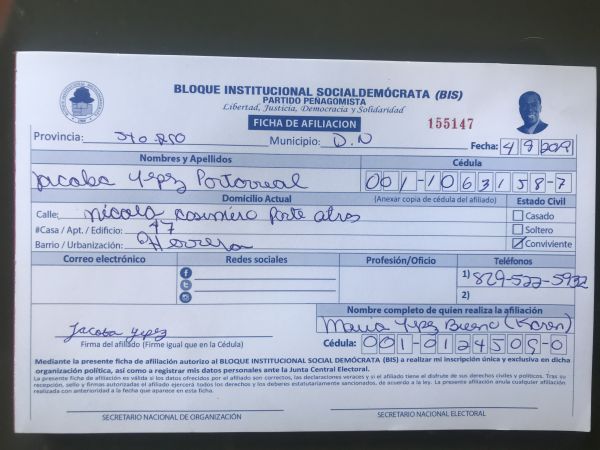 BLOQUE INSTITUCIONAL SOCIALDEMÓCRATA (BIS)
PARTIDO PEÑAGOMISTA
Libertad, Justicia, Democracia y Solidaridad
FICHA DE AFILIACION
155147
Provincia: Sto Dgo Municipio: D.N Fecha: 4 9 2019
Nombres y Apellidos Cédula
Jacoba Yepez Portorreal 001-1063158-7
Domicilio Actual (Anexar copia de cédula del afiliado) Estado Civil
Calle: Nicola Casimiro parte atras Casado
#Casa / Apt. / Edificio: 47 Soltero
Barrio / Urbanización: Herrera Conviviente
Correo electrónico Redes sociales Profesión/Oficio Teléfonos
1) 829-522-5932
2)
Nombre completo de quien realiza la afiliación
Jacoba yepez Maria Yepez Bueno (Karen)
Firma del afiliado (Firme igual que en la Cédula) Cédula: 001-0124509-0
Mediante la presente ficha de afiliación autorizo al BLOQUE INSTITUCIONAL SOCIAL DEMÓCRATA (BIS) a realizar mi inscripción única y exclusiva en dicha
organización política, así como a registrar mis datos personales ante la Junta Central Electoral.
La presente ficha de afiliación es válida si los datos ofrecidos son correctos, las declaraciones veraces y si el afiliado tiene el disfrute de sus derechos civiles y políticos. Tras su
recepción, sello y firmas autorizadas el afiliado ejercerá todos los derechos y los deberes estatutariamente sancionados, de acuerdo a la ley. La presente afiliación anula cualquier afiliación
realizada con anterioridad a la fecha que aparece en esta ficha.
SECRETARIO NACIONAL DE ORGANIZACIÓN SECRETARIO NACIONAL ELECTORAL